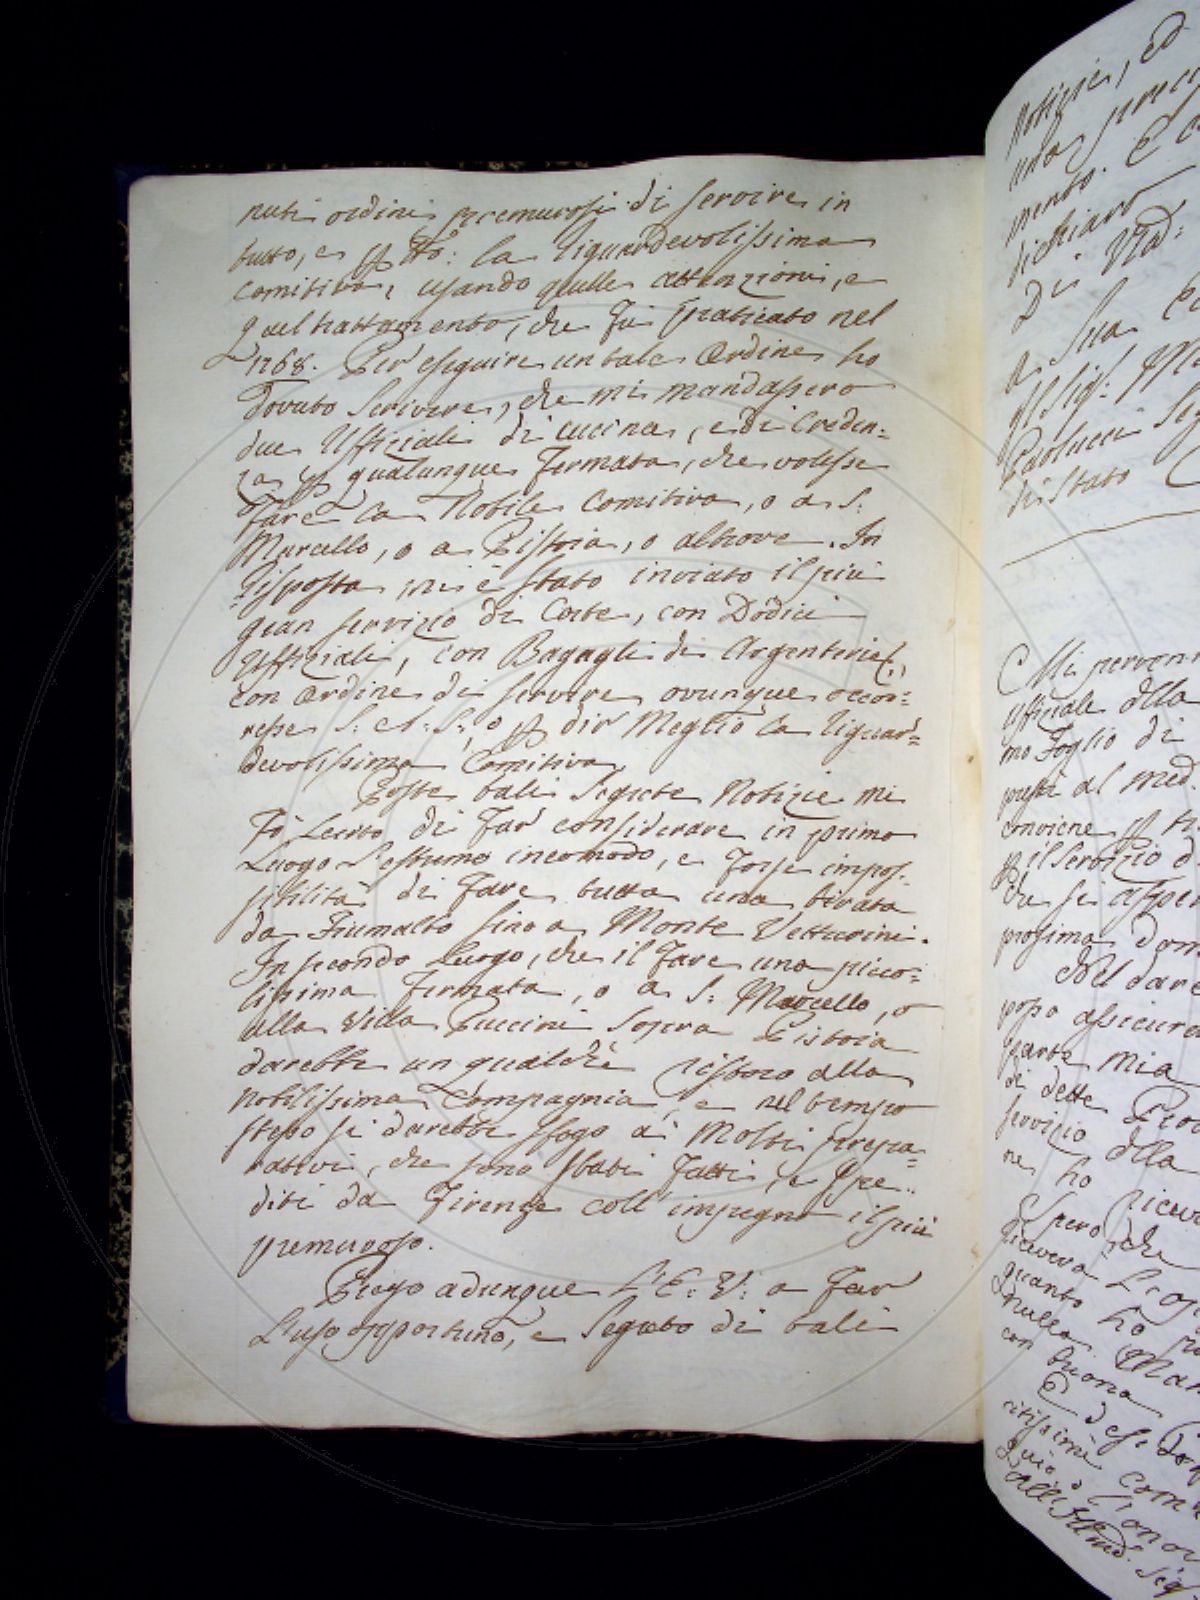 nuti ordini premurosi di servire in
tutto, e p tto: la riguardevolissima
comitiva, usando quelle attenzioni, e
quel trattamento, che fu praticato nel
1768. Per eseguire un tale ordine ho
dovuto scrivere, che mi mandassero
due Uffiziali di cucina, e di Creden=
za p qualunque fermata, che volesse
fare la Nobile Comitiva, o a S:
Marcello, o a Pistoia, o altrove. In
risposta mi è stato inviato il più
gran servizio di Corte, con Dodici
Uffiziali, con Bagagli di Argenterie,
con ordine di servire ovunque occor=
resse S: A: S: o p dir Meglio la riguar=
devolissima Comitiva.
Poste tali segrete Notizie mi
fò lecito di far considerare in primo
Luogo L'estremo incomodo, e forse impos=
sibilità di fare tutta una tirata
da Fiumalbo sino a Monte Vetturini.
In secondo Luogo, che il fare una picco=
lissima fermata, o a S: Marcello, o
alla Villa Puccini sopra Pistoia
darebbe un qualche ristoro alla
nobilissima Compagnia, e nel tempo
stesso si darebbe sfogo ai Molti prepa=
rativi, che sono stati fatti, e spe=
diti da Firenze coll'impegno il più
premuroso.
Prego adunque L'E: V: a far
L'uso opportuno, e segreto di tali
notizie, ed
una
mento. E
dichiaro
Di Vra:
a Sua
Il Sig: 
Paolucci
di Stato
Mi perven
Ufficiale della
mo Foglio di
presta al med.
conviene p
p il servizio d
prossima
Nel dare
posso assicura
parte mia
di dette
servizio della
ne ho
spero, che
riceverà
quanto ho
nulla
con buona
E
citissimi com
L'onor